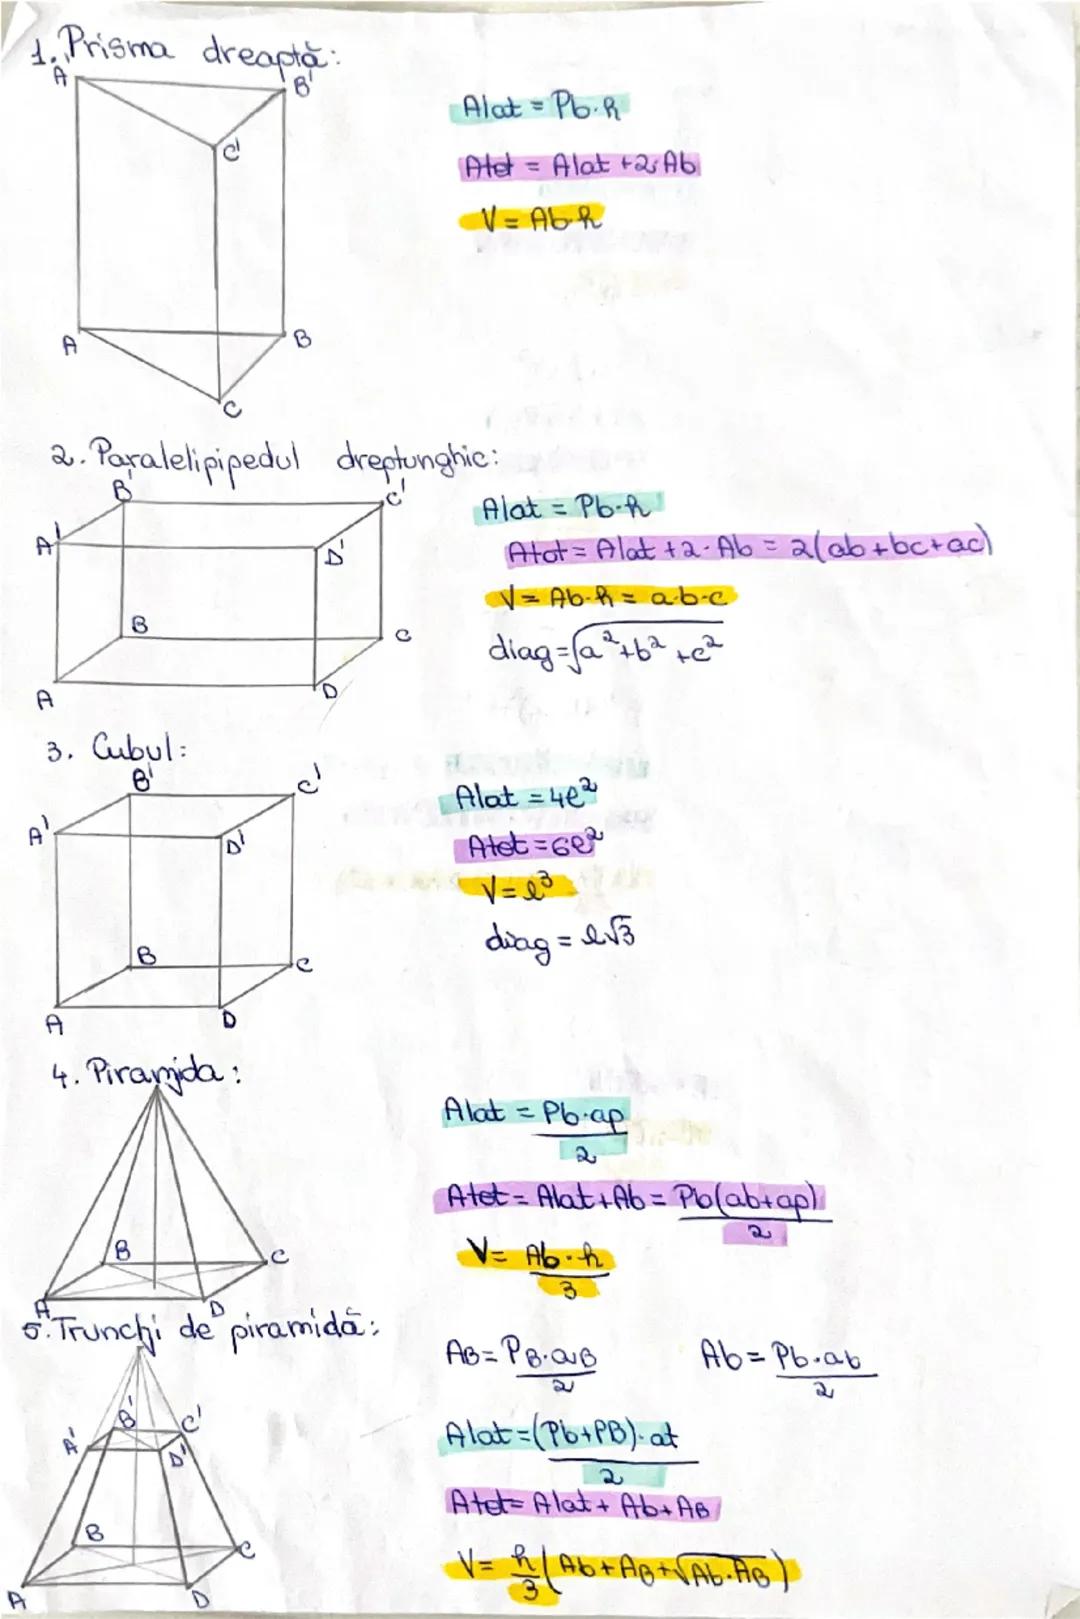 1. Prisma dreaptă:
A' B'
C'
A B
C
Alat = Pb·h
Atot = Alat + 2·Ab
V = Ab·h
2. Paralelipipedul dreptunghic:
B' C'
A' D'
B C
A D
Alat = Pb·h
Atot = Alat + 2·Ab = 2(ab+bc+ac)
V = Ab·h = a·b·c
diag = √a²+b²+c²
3. Cubul:
B' C'
A' D'
B C
A D
Alat = 4l²
Atot = 6l²
V = l³
diag = l√3
4. Piramida:
B C
A D
Alat = Pb·ap
2
Atot = Alat + Ab = Pb(ab+ap)
2
V = Ab·h
3
5. Trunchi de piramidă:
B' C'
A' D'
B C
A D
AB = PB·aB
2
Ab = Pb·ab
2
Alat = (Pb+PB)·at
2
Atot = Alat + Ab + AB
V = h/3 (Ab + AB + √Ab·AB)